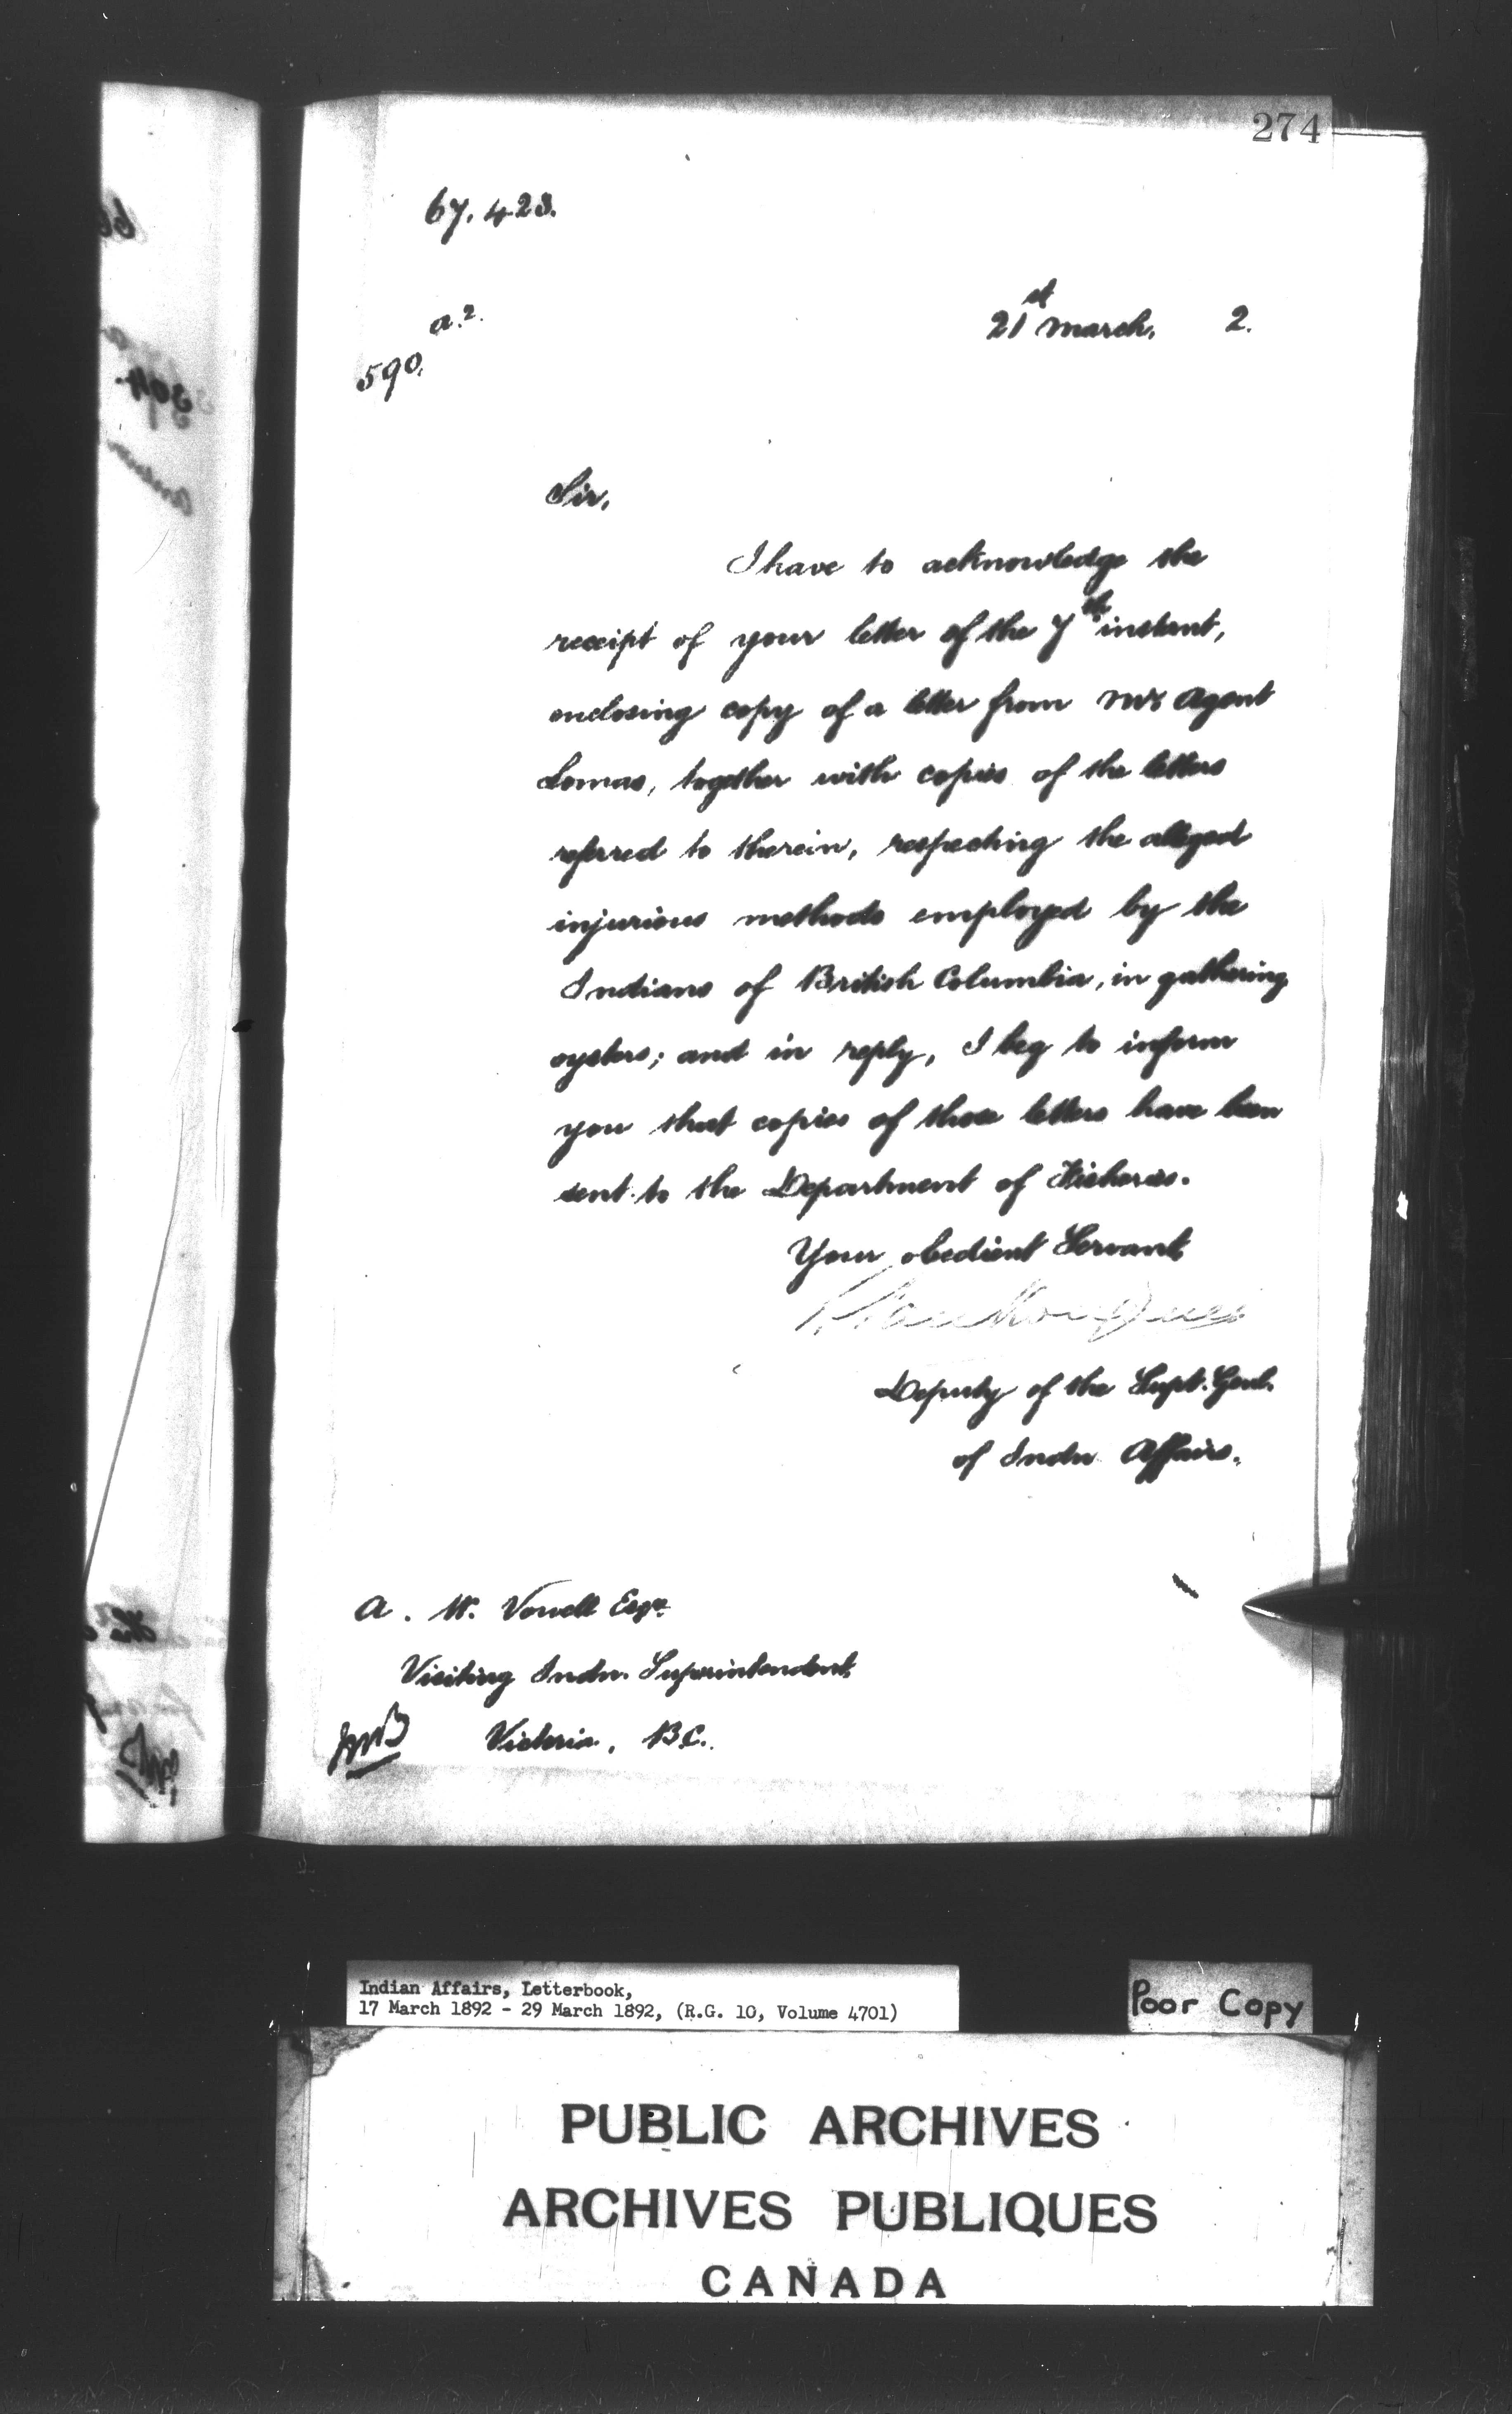 274
67,423.
a.2.
590.
21st March, 2.
Sir,
I have to acknowledge the
receipt of your letter of the 7th instant,
enclosing copy of a letter from Mr Agent
Lomas, together with copies of the letters
referred to therein, respecting the alleged
injurious methods employed by the
Indians of British Columbia, in gathering
oysters; and in reply, I beg to inform
you that copies of those letters have been
sent to the Department of Fisheries.
Your obedient Servant
L. Vankoughnet
Deputy of the Supt. Genl.
of Indn Affairs.
A. W. Vowell Esqre.
Visiting Indn. Superintendent,
Victoria, B.C.
Indian Affairs, Letterbook,
17 March 1892 - 29 March 1892, (R.G. 10, Volume 4701)
Poor Copy
PUBLIC ARCHIVES
ARCHIVES PUBLIQUES
CANADA